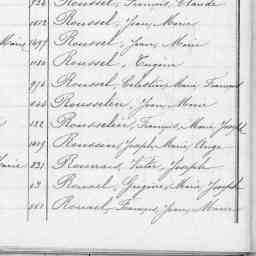 928 Roussel, François, Claude
1852 Roussel, Jean, Marie
1497 Roussel, Jean, Marie
Roussel, Eugène
976 Roussel, Célestin, Marie, François
Rousselin, Jean, Marie
122 Rousselin, François, Marie, Joseph
1419 Joseph, Marie, Ange
831 Victor, Joseph
Rouxel, Grégoire, Marie, Joseph
Rouxel, François, Jean, Marie